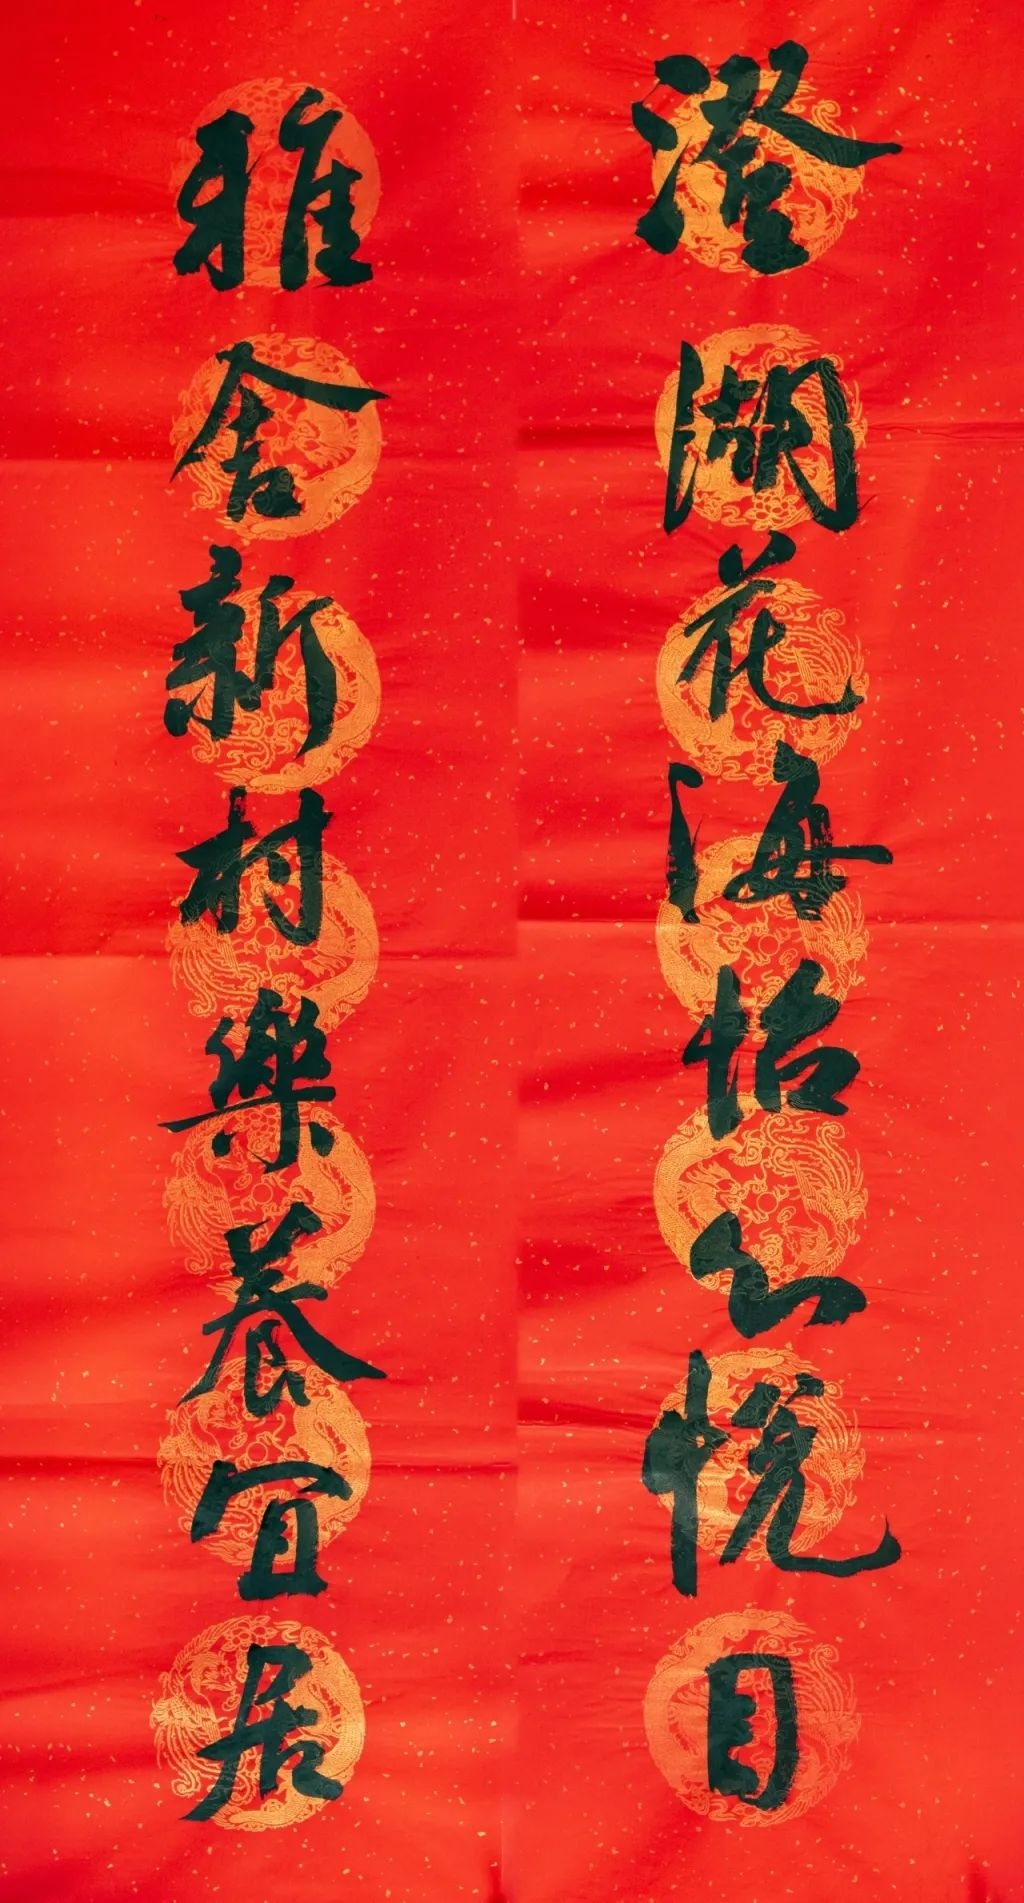 澄湖花海怡心悦目
雅舍新村樂養宜居